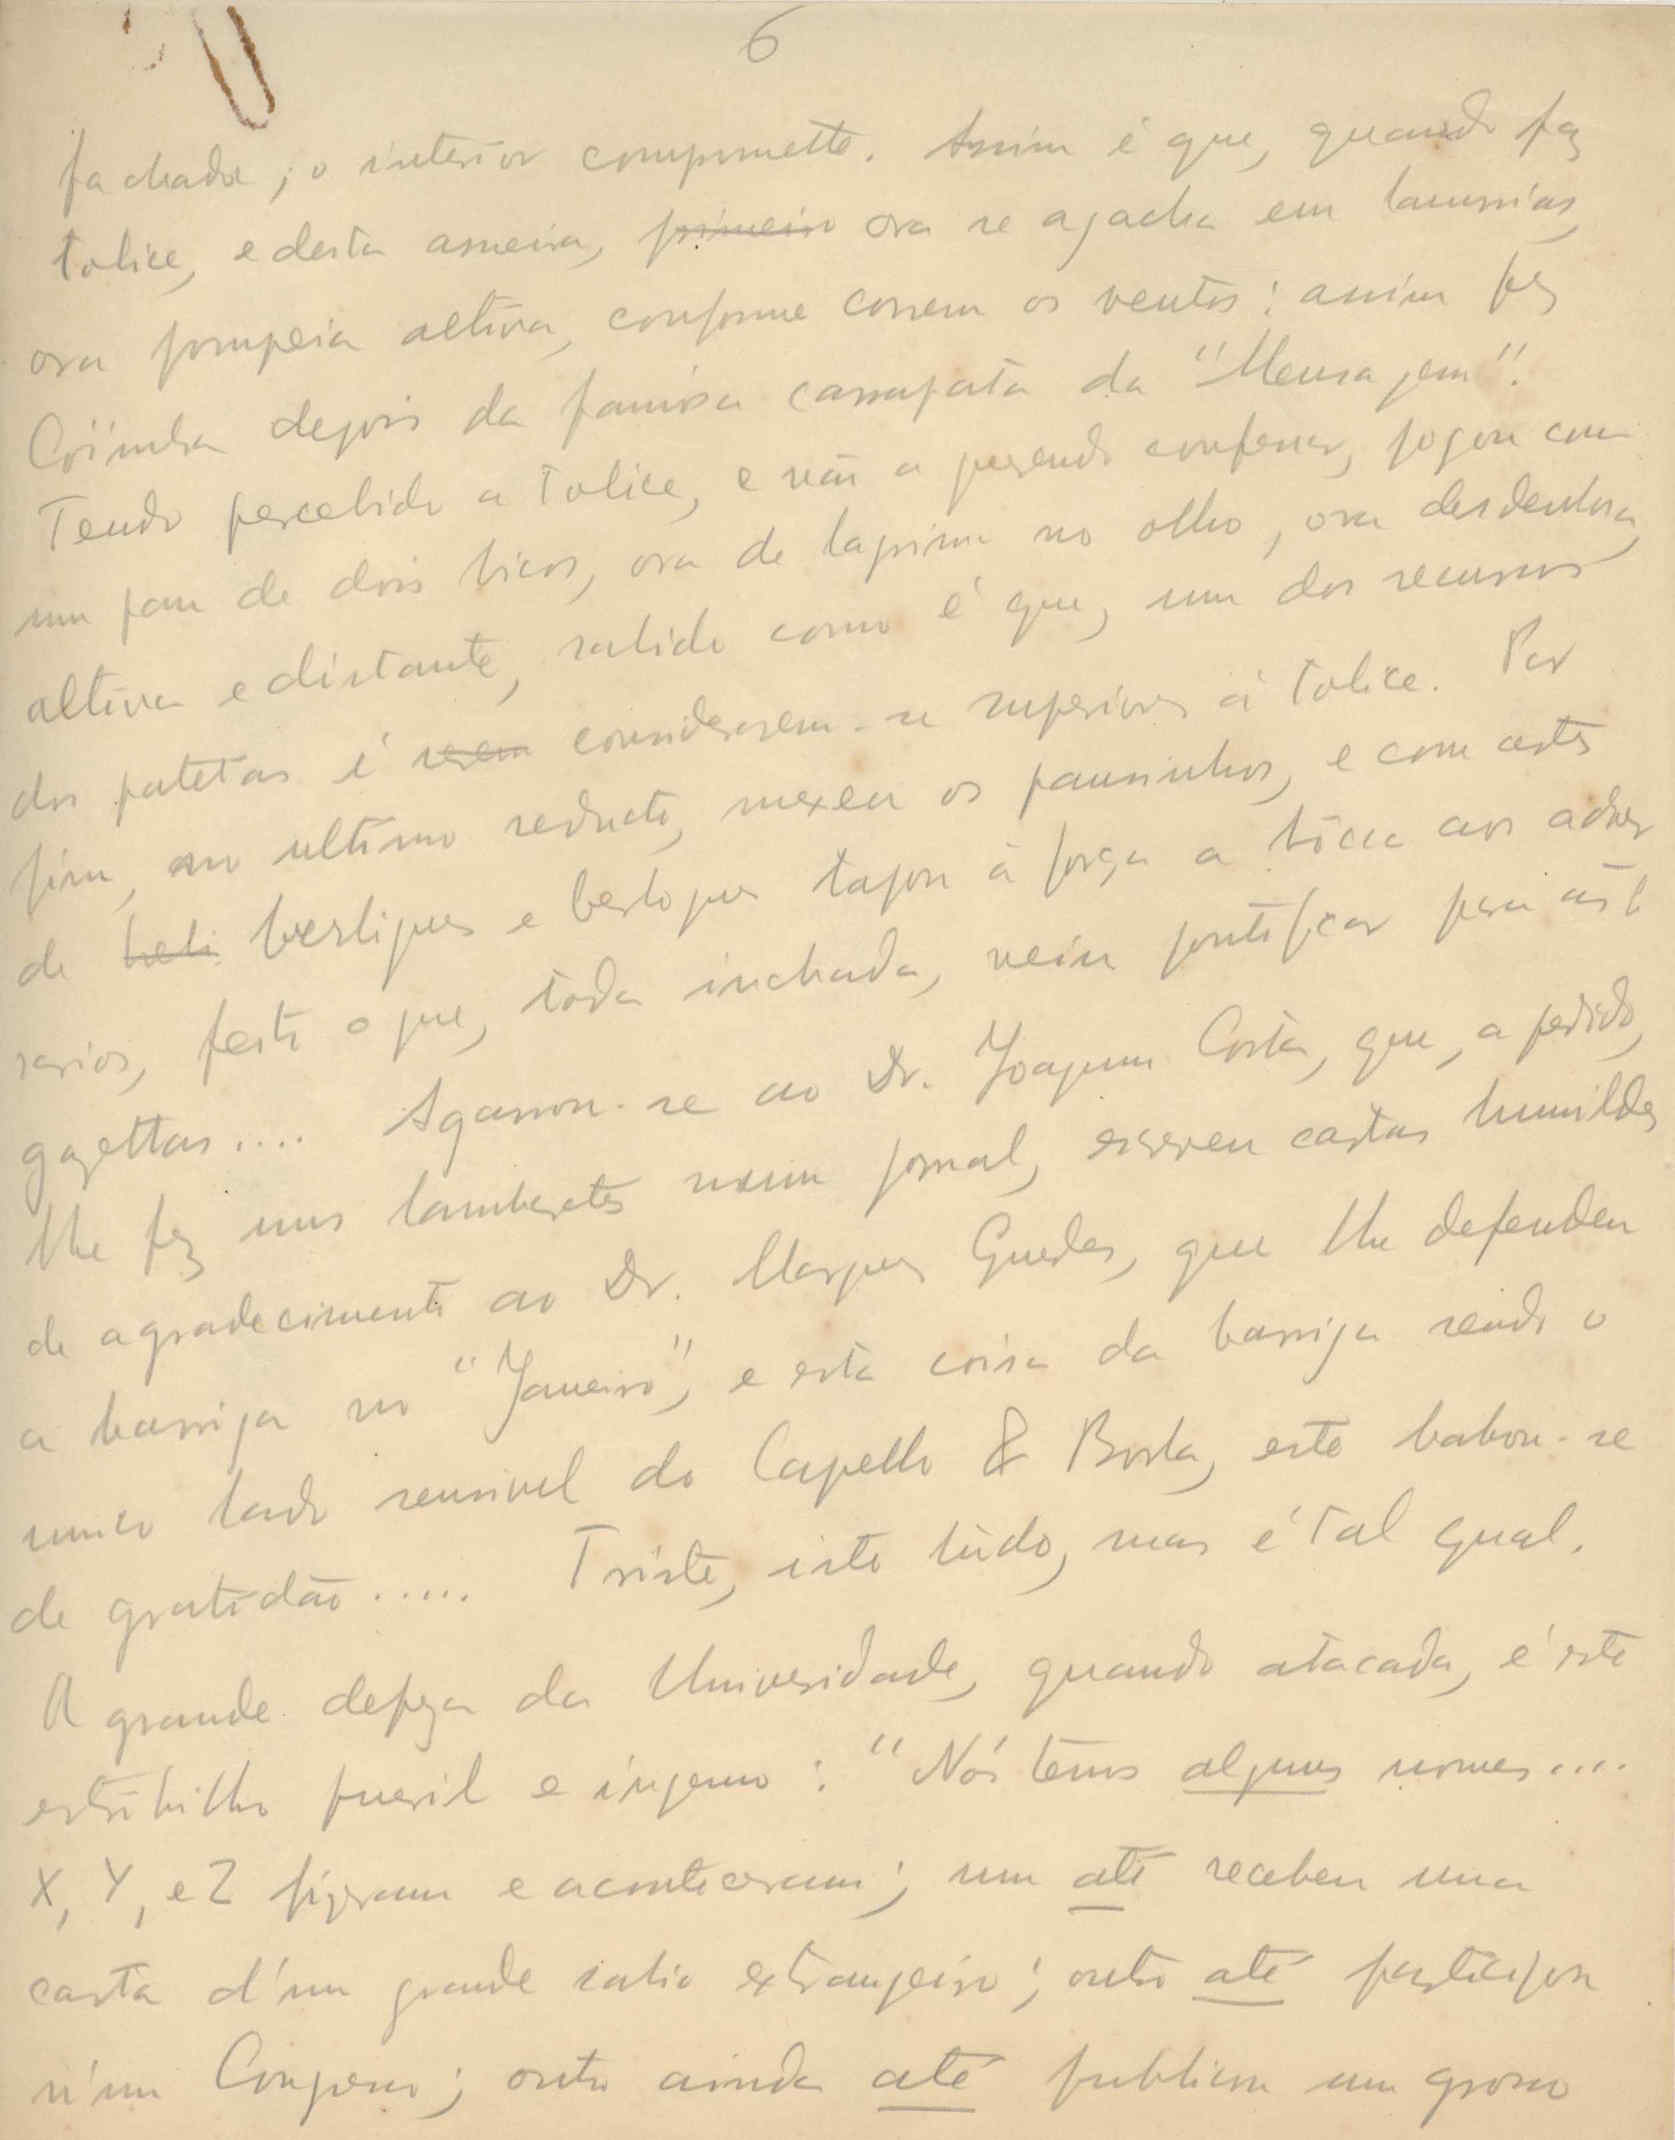 6
fachada; o interior compromette. Assim é que, quando faz
tolice, e desta asneira, primeiro ora se agacha em lamurias,
ora pompeia altiva, conforme correm os ventos: assim fez
Coimbra depois da famosa carrapata da "Mensagem".
Tendo percebido a tolice, e não a querendo confessar, jogou com
um pau de dois bicos, ora de lagrima no olho, ora desdenhosa,
altiva e distante, sabido como é que, um dos recursos
dos patetas é serem considerarem-se superiores á tolice. Por
fim, no ultimo reducto, mexeu os pausinhos, e com artes
de berli berliques e berloques tapou á força a bôcca aos adver
sarios, feito o que, toda inchada, veiu pontificar para as
gazettas.... Agarrou-se ao Dr. Joaquim Costa, que, a pedido,
lhe fez uns lamberetes num jornal, escreveu cartas humildes
de agradecimento ao Dr. Marques Guedes, que lhe defendeu
a barriga no "Janeiro", e esta coisa da barriga sendo o
unico lado sensivel do Capello & Borla, este babou-se
de gratidão..... Triste, isto tudo, mas é tal qual.
A grande defeza da Universidade, quando atacada, é este
estribilho pueril e ingenuo: "Nós temos alguns nomes....
X, Y, e Z fizeram e aconteceram; um até recebeu uma
carta d'um grande sabio extrangeiro; outro até participou
n'um Congresso; outro ainda até publicou um grosso